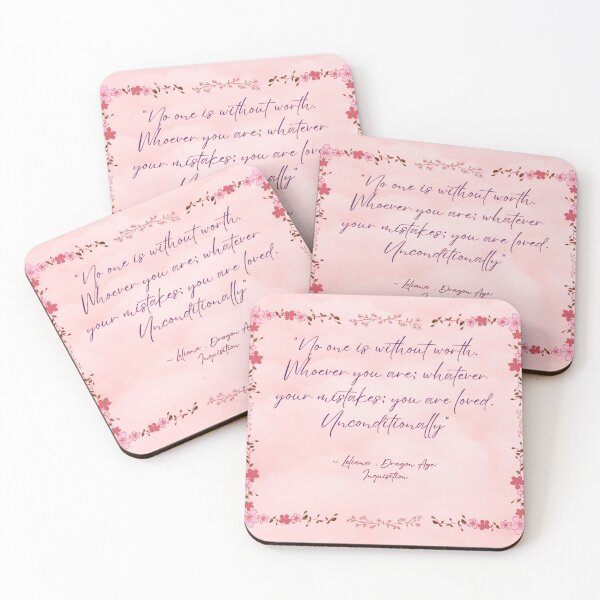 "No one is without worth.
Whoever you are; whatever
your mistakes; you are loved.
"No one is without worth.
Whoever you are; whatever
your mistakes; you are loved.
Unconditionally"
~ Leliana , Dragon Age:
"No one is without worth.
Whoever you are; whatever
your mistakes; you are loved.
Unconditionally"
~ Leliana , Dragon
Inquisition
"No one is without worth.
Whoever you are; whatever
your mistakes; you are loved.
Unconditionally"
~ Leliana , Dragon Age:
Inquisition